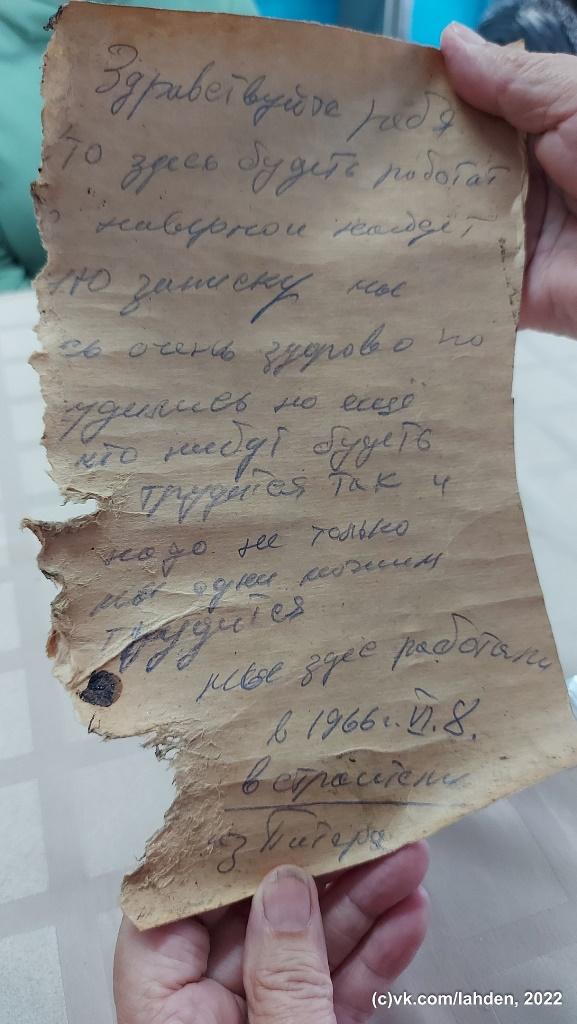 Здравствуйте ребя
то здесь будеть работат
наверной найдет
ую записку мы
сь очень здорово по
удились но ещё
кто нибут будеть
трудится так и
надо не только
мы одни можим
трудится
мы здес работали
в 1966 г. VI. 8.
в строители
из Питера
(c)vk.com/lahden, 2022